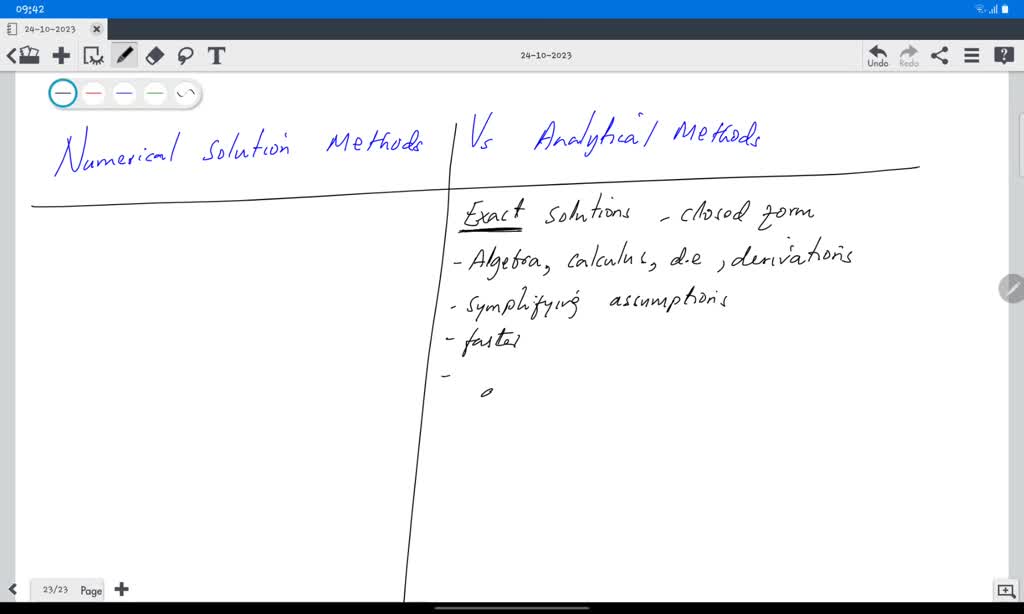 09:42
24-10-2023
T
24-10-2023
Undo
Redo
Numerical Solution Methods Vs Analytical Methods
Exact solutions - closed form
- Algebra, calculus, d.e, derivations
- symplifying assumptions
- faster
-
23/23 Page